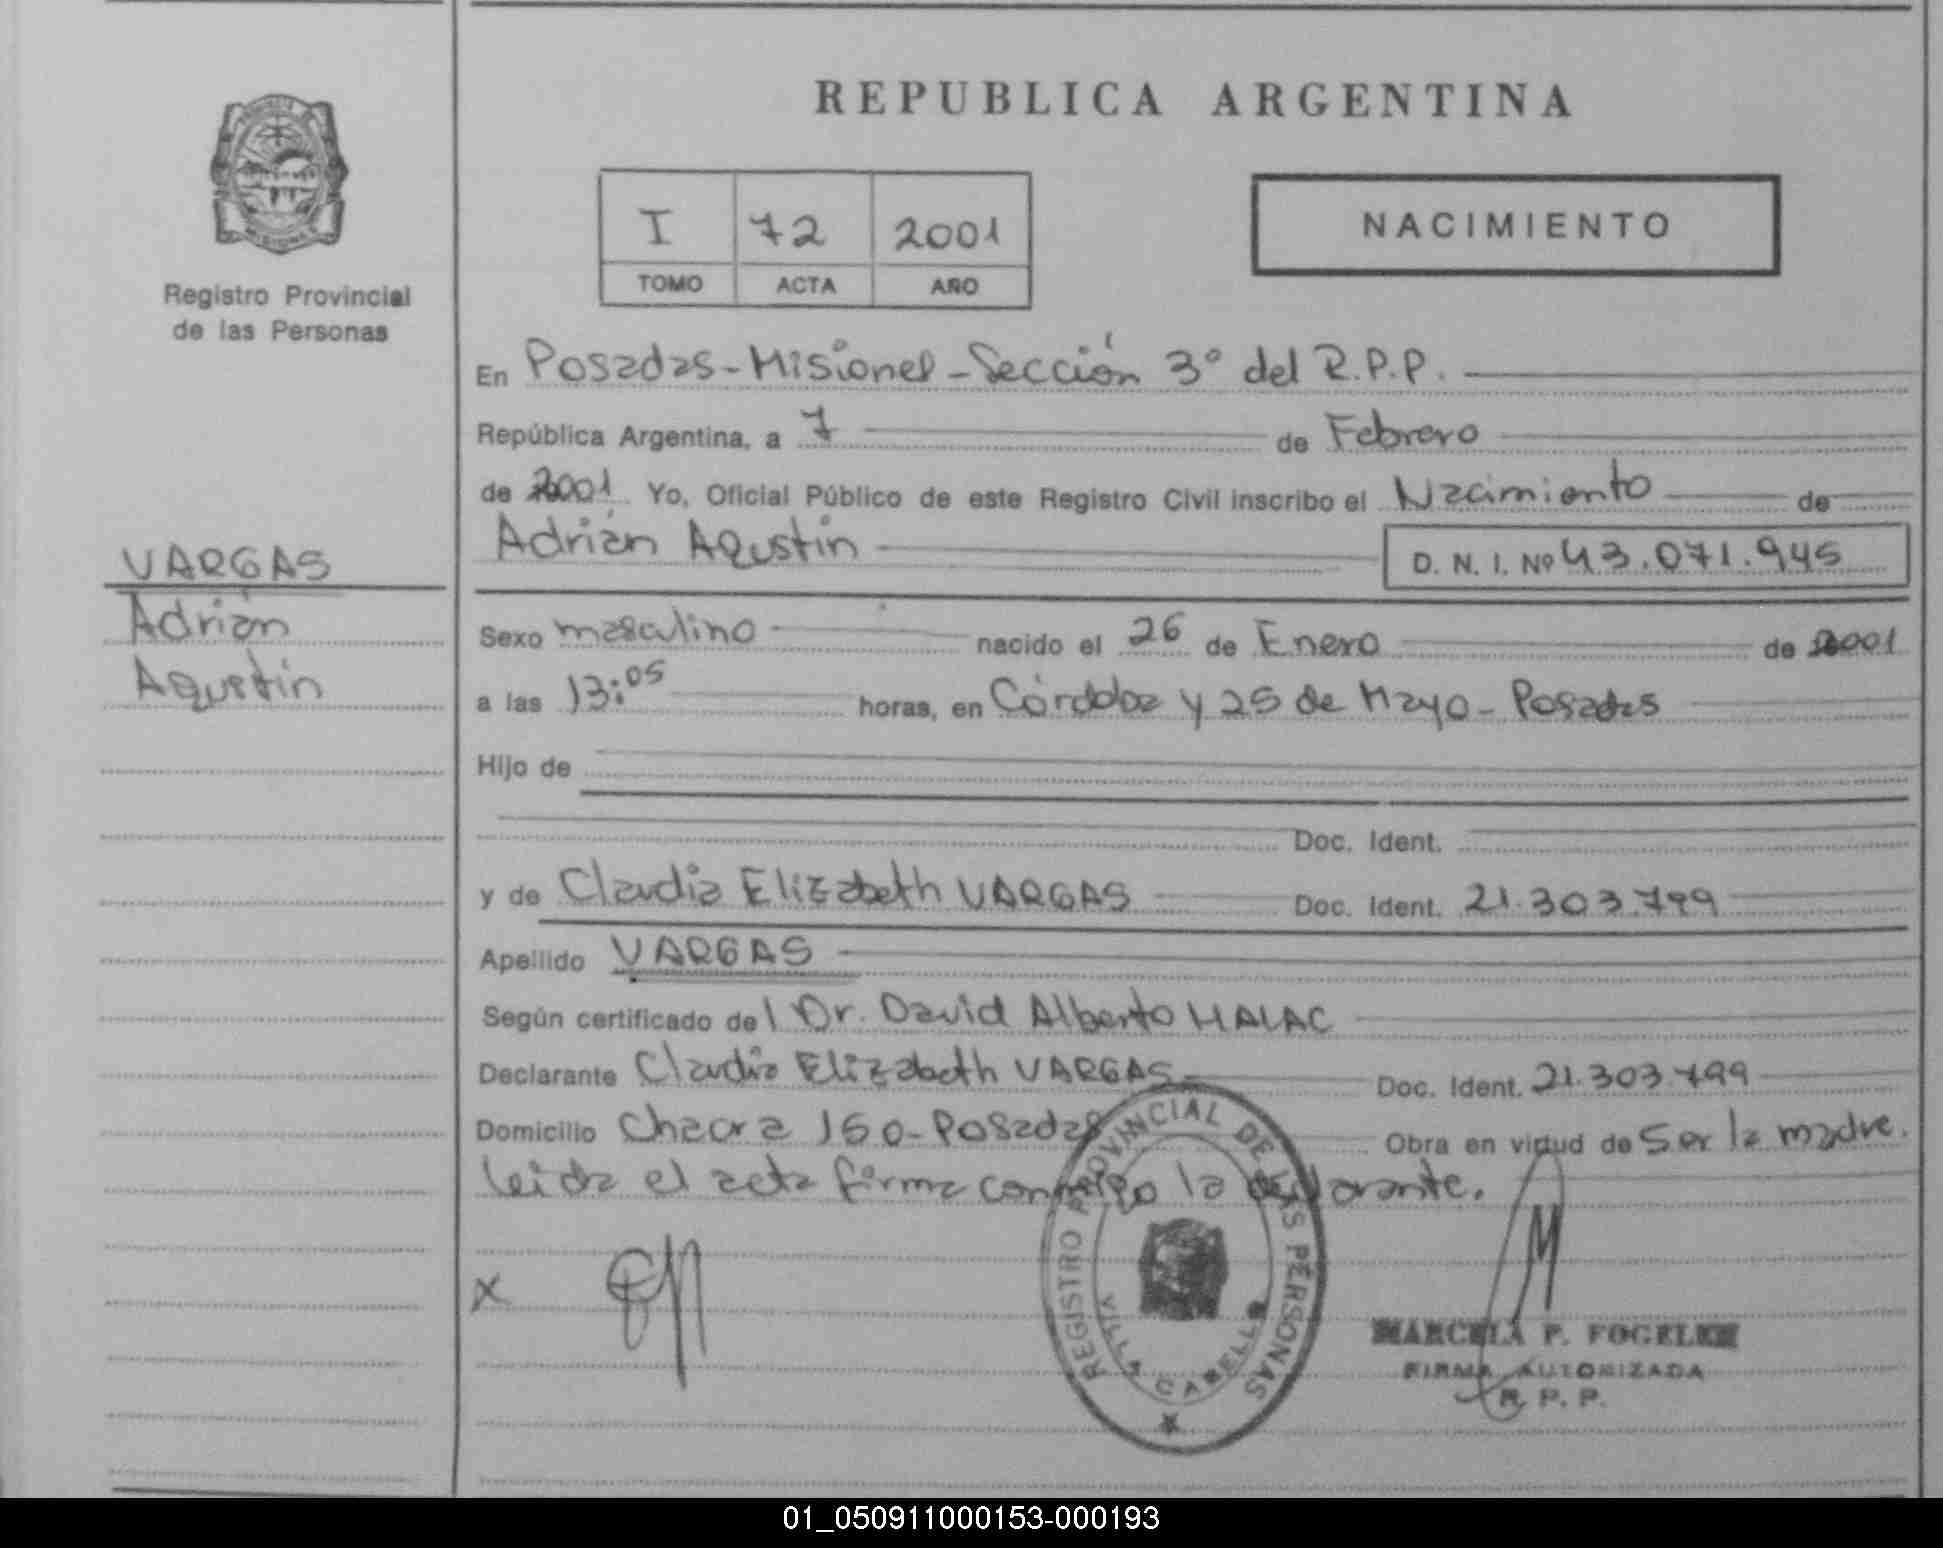 REPUBLICA ARGENTINA
I 72 2001
TOMO ACTA AÑO
NACIMIENTO
Registro Provincial
de las Personas
En Posadas-Misiones-Sección 3° del R.P.P.
República Argentina, a 7 de Febrero
de 2001 Yo, Oficial Público de este Registro Civil inscribo el Nacimiento de
Adrián Agustín D. N. I. Nº 43.071.945
VARGAS
Adrián
Agustín
Sexo masculino nacido el 26 de Enero de 2001
a las 13:05 horas, en Córdoba y 25 de Mayo - Posadas
Hijo de
Doc. Ident.
y de Claudia Elizabeth VARGAS Doc. Ident. 21.303.799
Apellido VARGAS
Según certificado del Dr. David Alberto HALAC
Declarante Claudia Elizabeth VARGAS Doc. Ident. 21.303.799
Domicilio Chacra 150-Posadas Obra en virtud de ser la madre.
leida el acta firma conmigo la declarante.
X
REGISTRO PROVINCIAL DE LAS PERSONAS
VILLA CABELLO
MARCELA F. FOGELER
FIRMA AUTORIZADA
R. P. P.
01_050911000153-000193